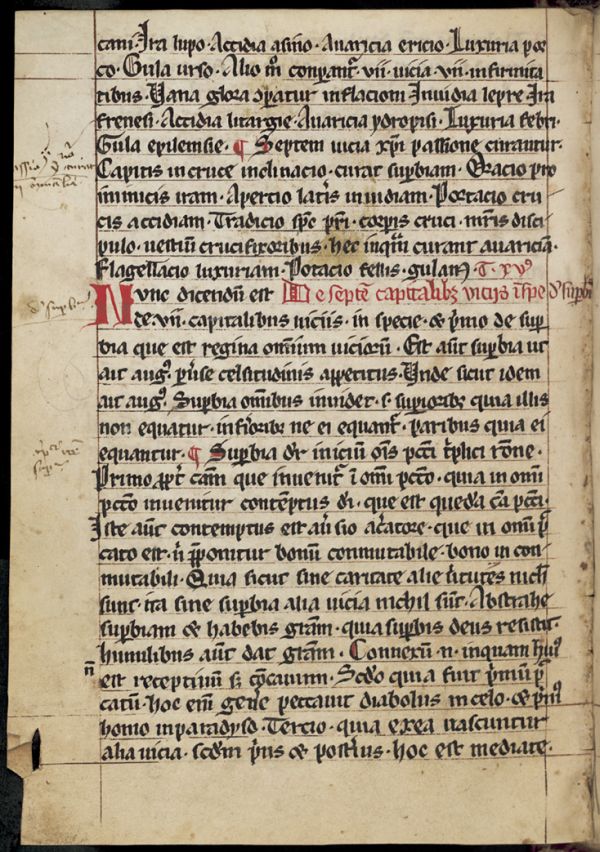 cani · Ira lupo · Accidia asino · Auaricia ericio · Luxuria por
co · Gula urso · Alio mo conparantr · vii · uicia · vii · infirmita
tibus · Vana gloria conparatur inflacioni Inuidia lepre Ira
frenesi · Accidia litargie · Auaricia ydropisi · Luxuria febri ·
Gula epilensie · ¶ Septem uicia xpi passione curantur ·
Capitis in cruce inclinacio · curat supbiam · Oracio pro
inimicis iram · Apercio latis inuidiam · Portacio cru
cis accidiam · Tradicio spc pri · corpis cruci · mris disci
pulo · uestium crucifixoribus · hec inquam curant auariciam ·
Flagellacio luxuriam · Potacio fellis · gulam · T · xvo
Nunc dicendum est De septem capitalibz uiciis i spe d' supbia
de · vii · capitalibus uiciis · in specie · & pmo de sup
bia que est regina omnium uiciorum · Est aut supbia ut
ait aug9 puerse celsitudinis appetitus · Unde sicut idem
ait aug9 · Supbia omnibus inuidet · s · supioribz quia illis
non equatur · inferioribz ne ei equantur · paribus quia ei
equantur · ¶ Supbia dr inicium omis pccti triplici rone ·
Primo ppt cam que inuenitr i omi pccto · quia in omi
pccto inuenitur contemptus di · que est quedam ca pccti ·
Iste aut contemptus est auersio a creatore · que in omi pec
cato est · ubi pponitur bonum conmutabile · bono in con
mutabili · Quia sicut sine caritate alie uirtutes nichil
sunt · ita sine supbia alia uicia nichil sunt · Abstrahe
supbiam & habebis gram · quia supbis deus resistit
humilibus aut dat gram · Connexum · n · inquam huius
est receptiuum sz
Scdo quia fuit primum pec
catum · hoc enim genere peccauit diabolus in celo · & primus
homo in paradyso · Tercio · quia ex ea nascuntur
alia uicia · scdm prius & posterius · hoc est mediate ·
d' supbia